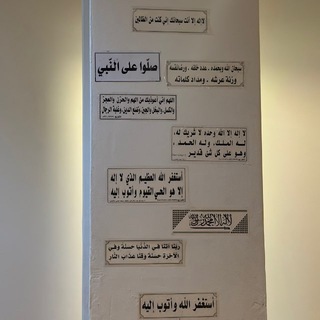 لا إله إلا أنت سبحانك إني كنت من الظالمين
صلّوا على النّبي
سبحان الله وبحمده . عدد خلقه . ورضا نفسه
وزنة عرشه . ومداد كلماته
اللهم إني أعوذ بك من الهم والحزن والعجز
والكسل والبخل والجبن وضلع الدين وغلبة الرجال
لا إله إلا الله وحده لا شريك له،
له الملك، وله الحمد،
وهو على كل شئ قدير
أستغفر الله العظيم الذي لا إله
إلا هو الحي القيوم وأتوب إليه
لا إله إلا الله محمد رسول الله
ربنا آتنا في الدنيا حسنة وفي
الآخرة حسنة وقنا عذاب النار
أستغفر الله وأتوب إليه